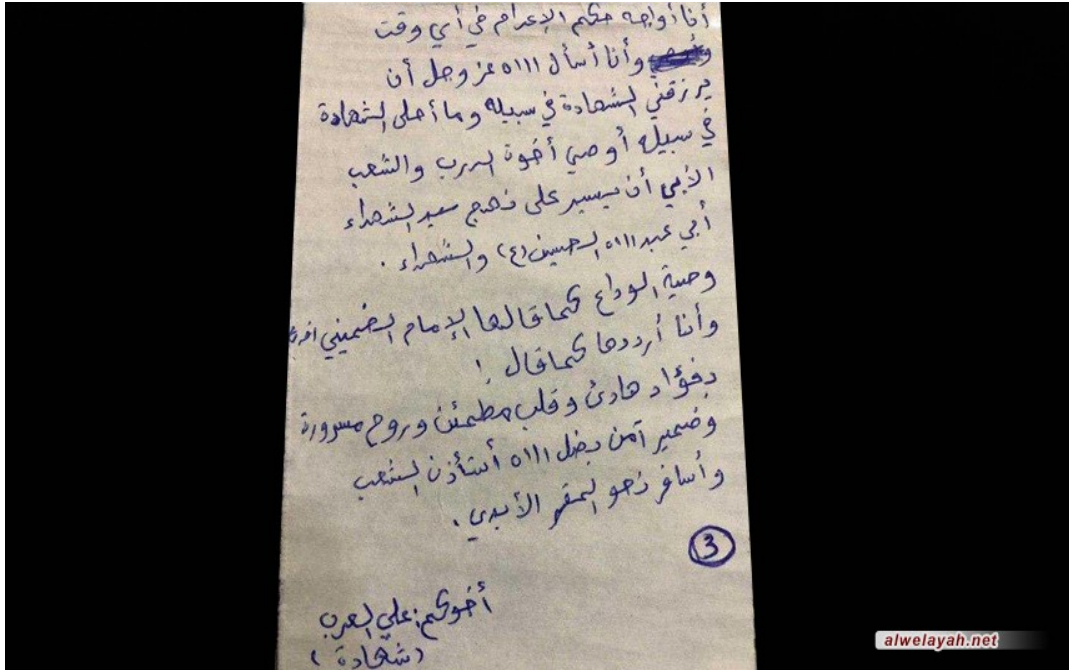 أنا أواجه حكم الإعدام في أي وقت
وأنا أسأل الله عز وجل أن
يرزقني الشهادة في سبيله وما أحلى الشهادة
في سبيله أوصي أخوة الدرب والشعب
الأبي أن يسير على نهج سيد الشهداء
أبي عبد الله الحسين (ع) والشهداء .
وصية الوداع كما قالها الإمام الخميني
وأنا أرددها كما قال !
بفؤاد هادئ وقلب مطمئن وروح مسرورة
وضمير آمن بفضل الله أستأذن الشعب
وأسافر نحو المقر الأبدي .
3
أخوكم : علي العرب
(شهادة)
alwelayah.net